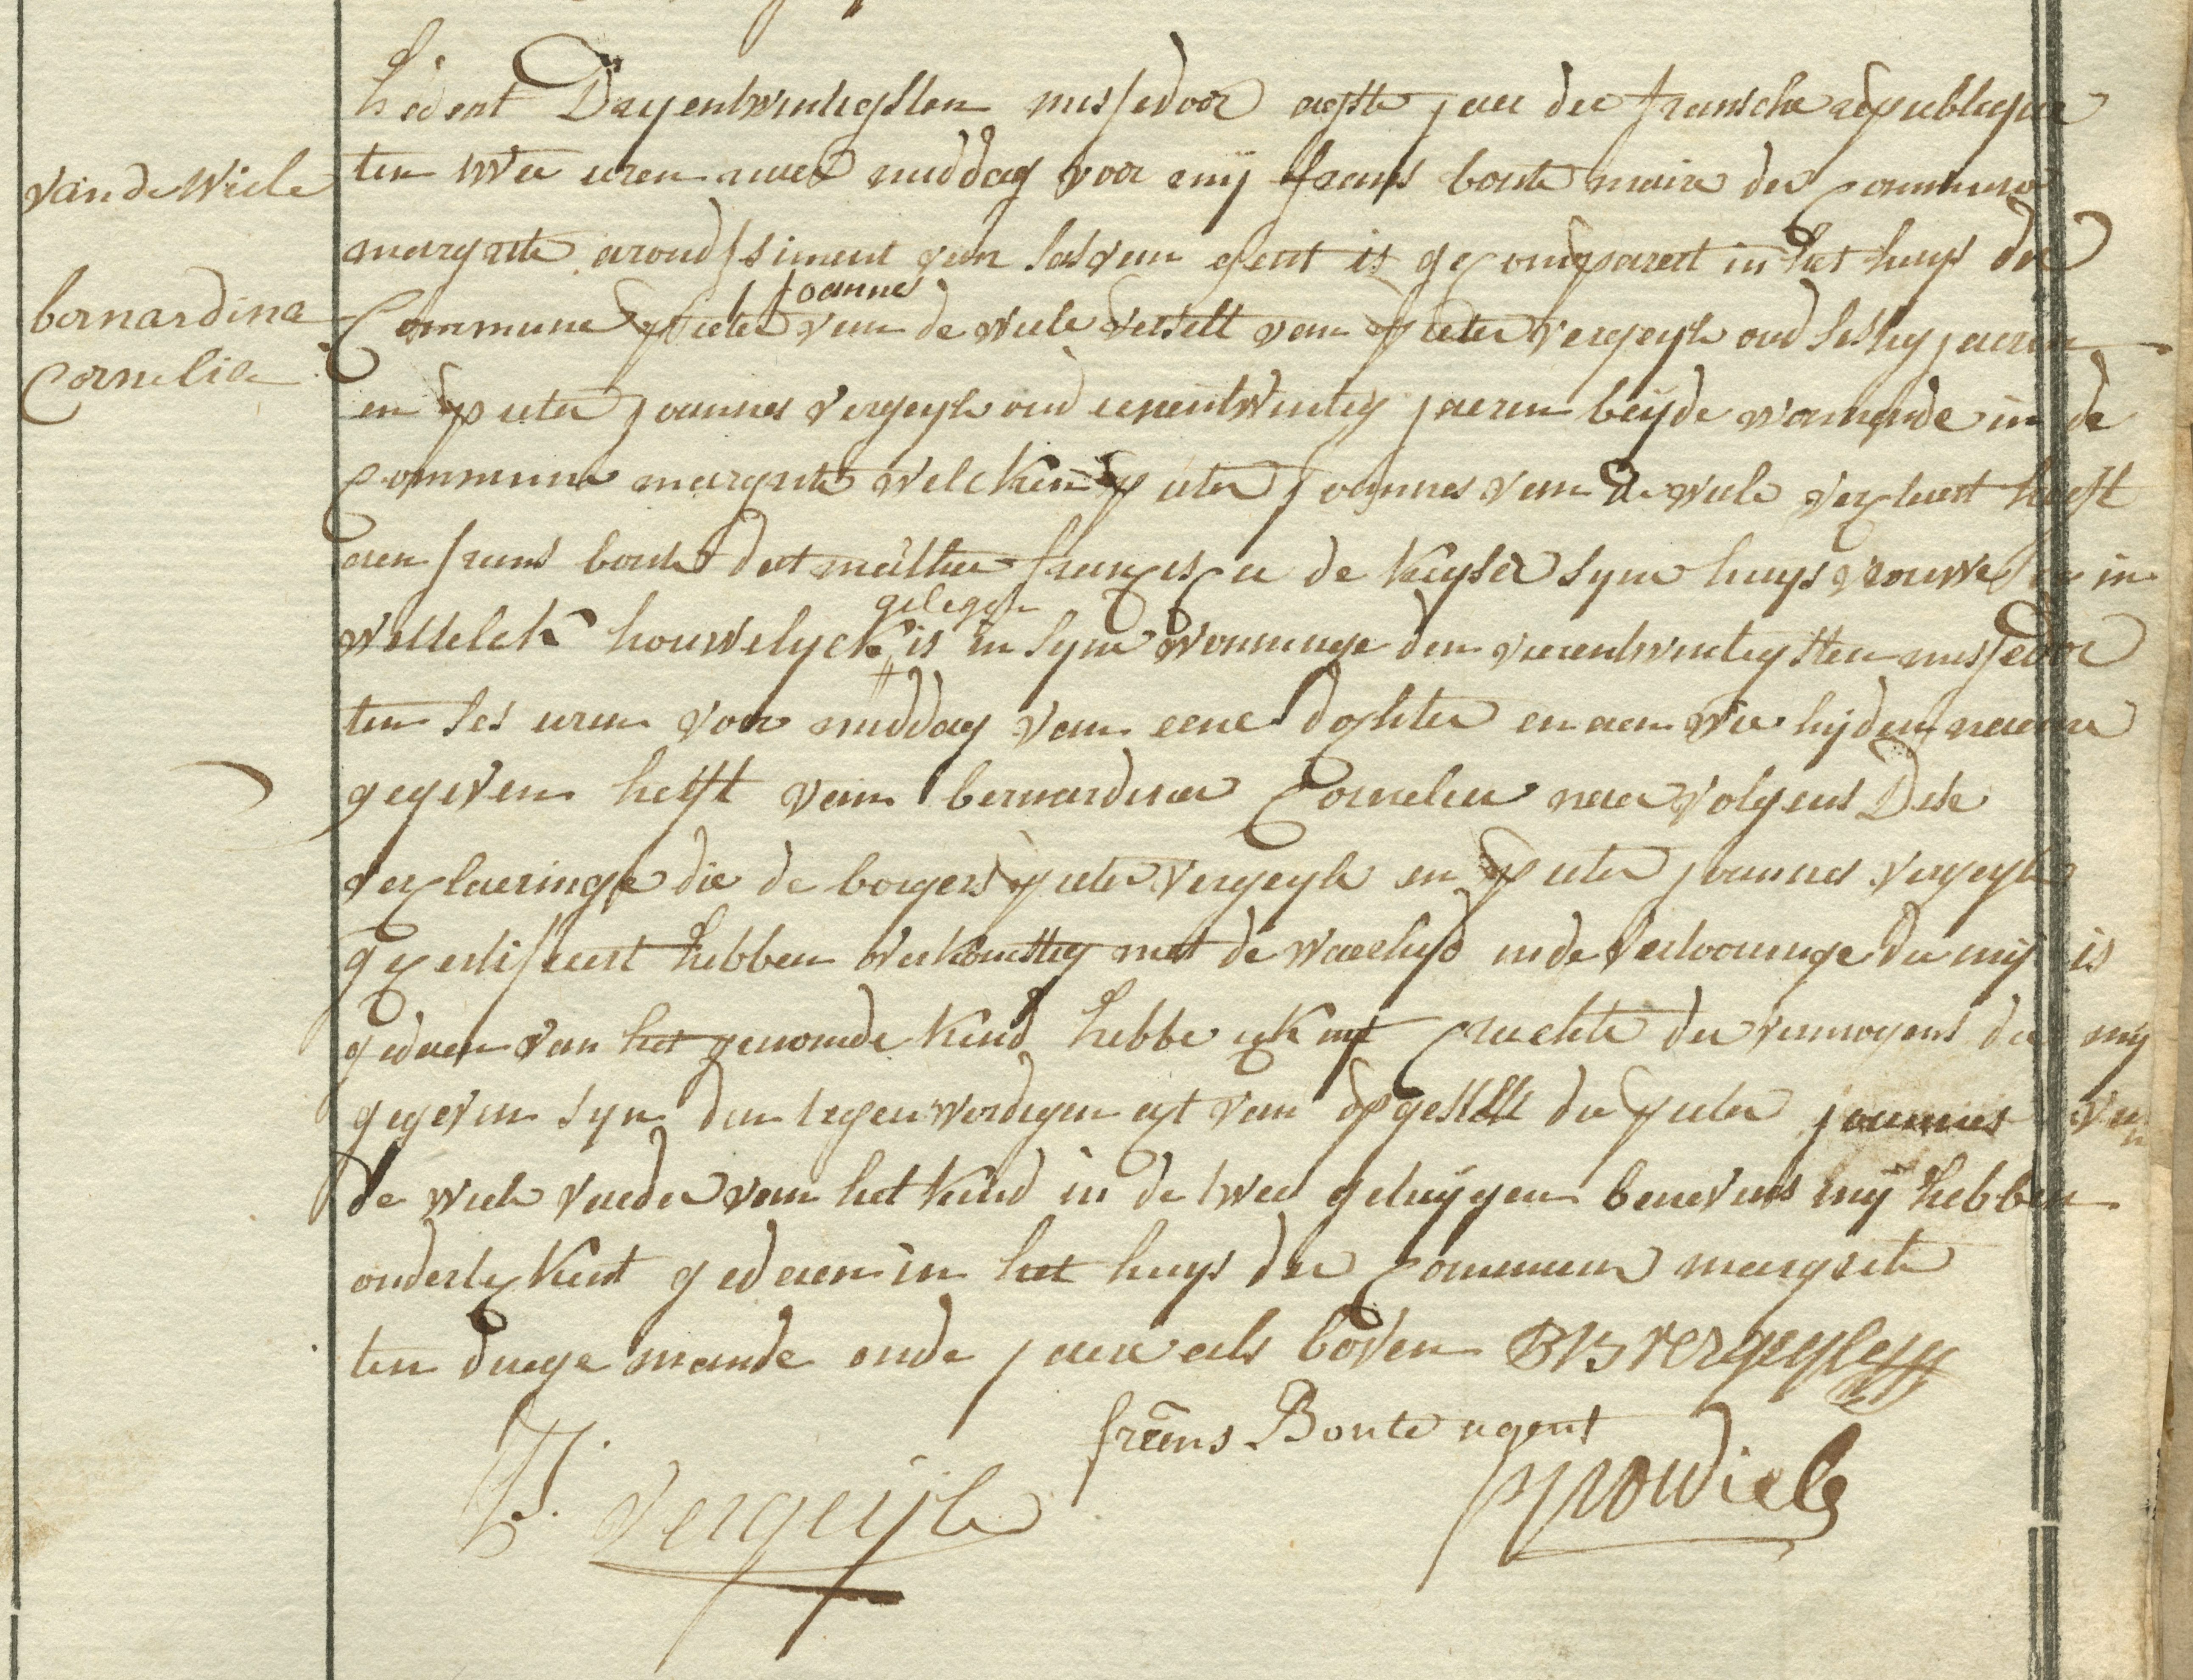 van de Wiele
bernardina
Cornelia
hedent Dryentwintigsten messidoor agste jaer der fransche republique
ten twee uren naer middag voor mij frans bonte maire der commune
margrete arondissiment van sas van gent is gecompareert in het huys der
Joannes
Commune pieter van de wiele verselt van pieter vergeyle oud sestig jaeren
en pieter joannes vergeyle oud eenentwintig jaeren beyde woonende in de
commune margrete welcken pieter joannes van de wiele verclaert heeft
aen frans bonte dat francisca de keyser syne huysvrouwe in
gelegen
wettelck houwelyck is in syne wooninge den vierentwintigsten messedoor
ten ses uren voor middag van eene dochter en aen wie hy den naeme
gegeven heeft van bernardina Cornelia naer volgens Dese
verclaeringe die de borgers pieter vergeyle en pieter joannes vergeyle
gecertifieert hebben overkomstig met de waerhyd en de vertooninge die mij is
gedaen van het genoemde kind hebbe ick uyt crachte der vermogens die mij
gegeven syn den tegenwordigen act van opgestelt die pieter joannes van
de wiele vaeder van het kind en de twee getuygen benevens mij hebben
onderteckent gedaen in het huys der commune margrete
ten daege maende ende jaere als boven vergeyle
frans Bonte agent
vergeyle
vdwiele